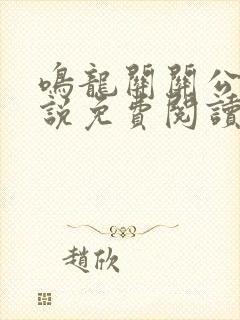 鳴龍關關公
說免費閱讀
趙欣